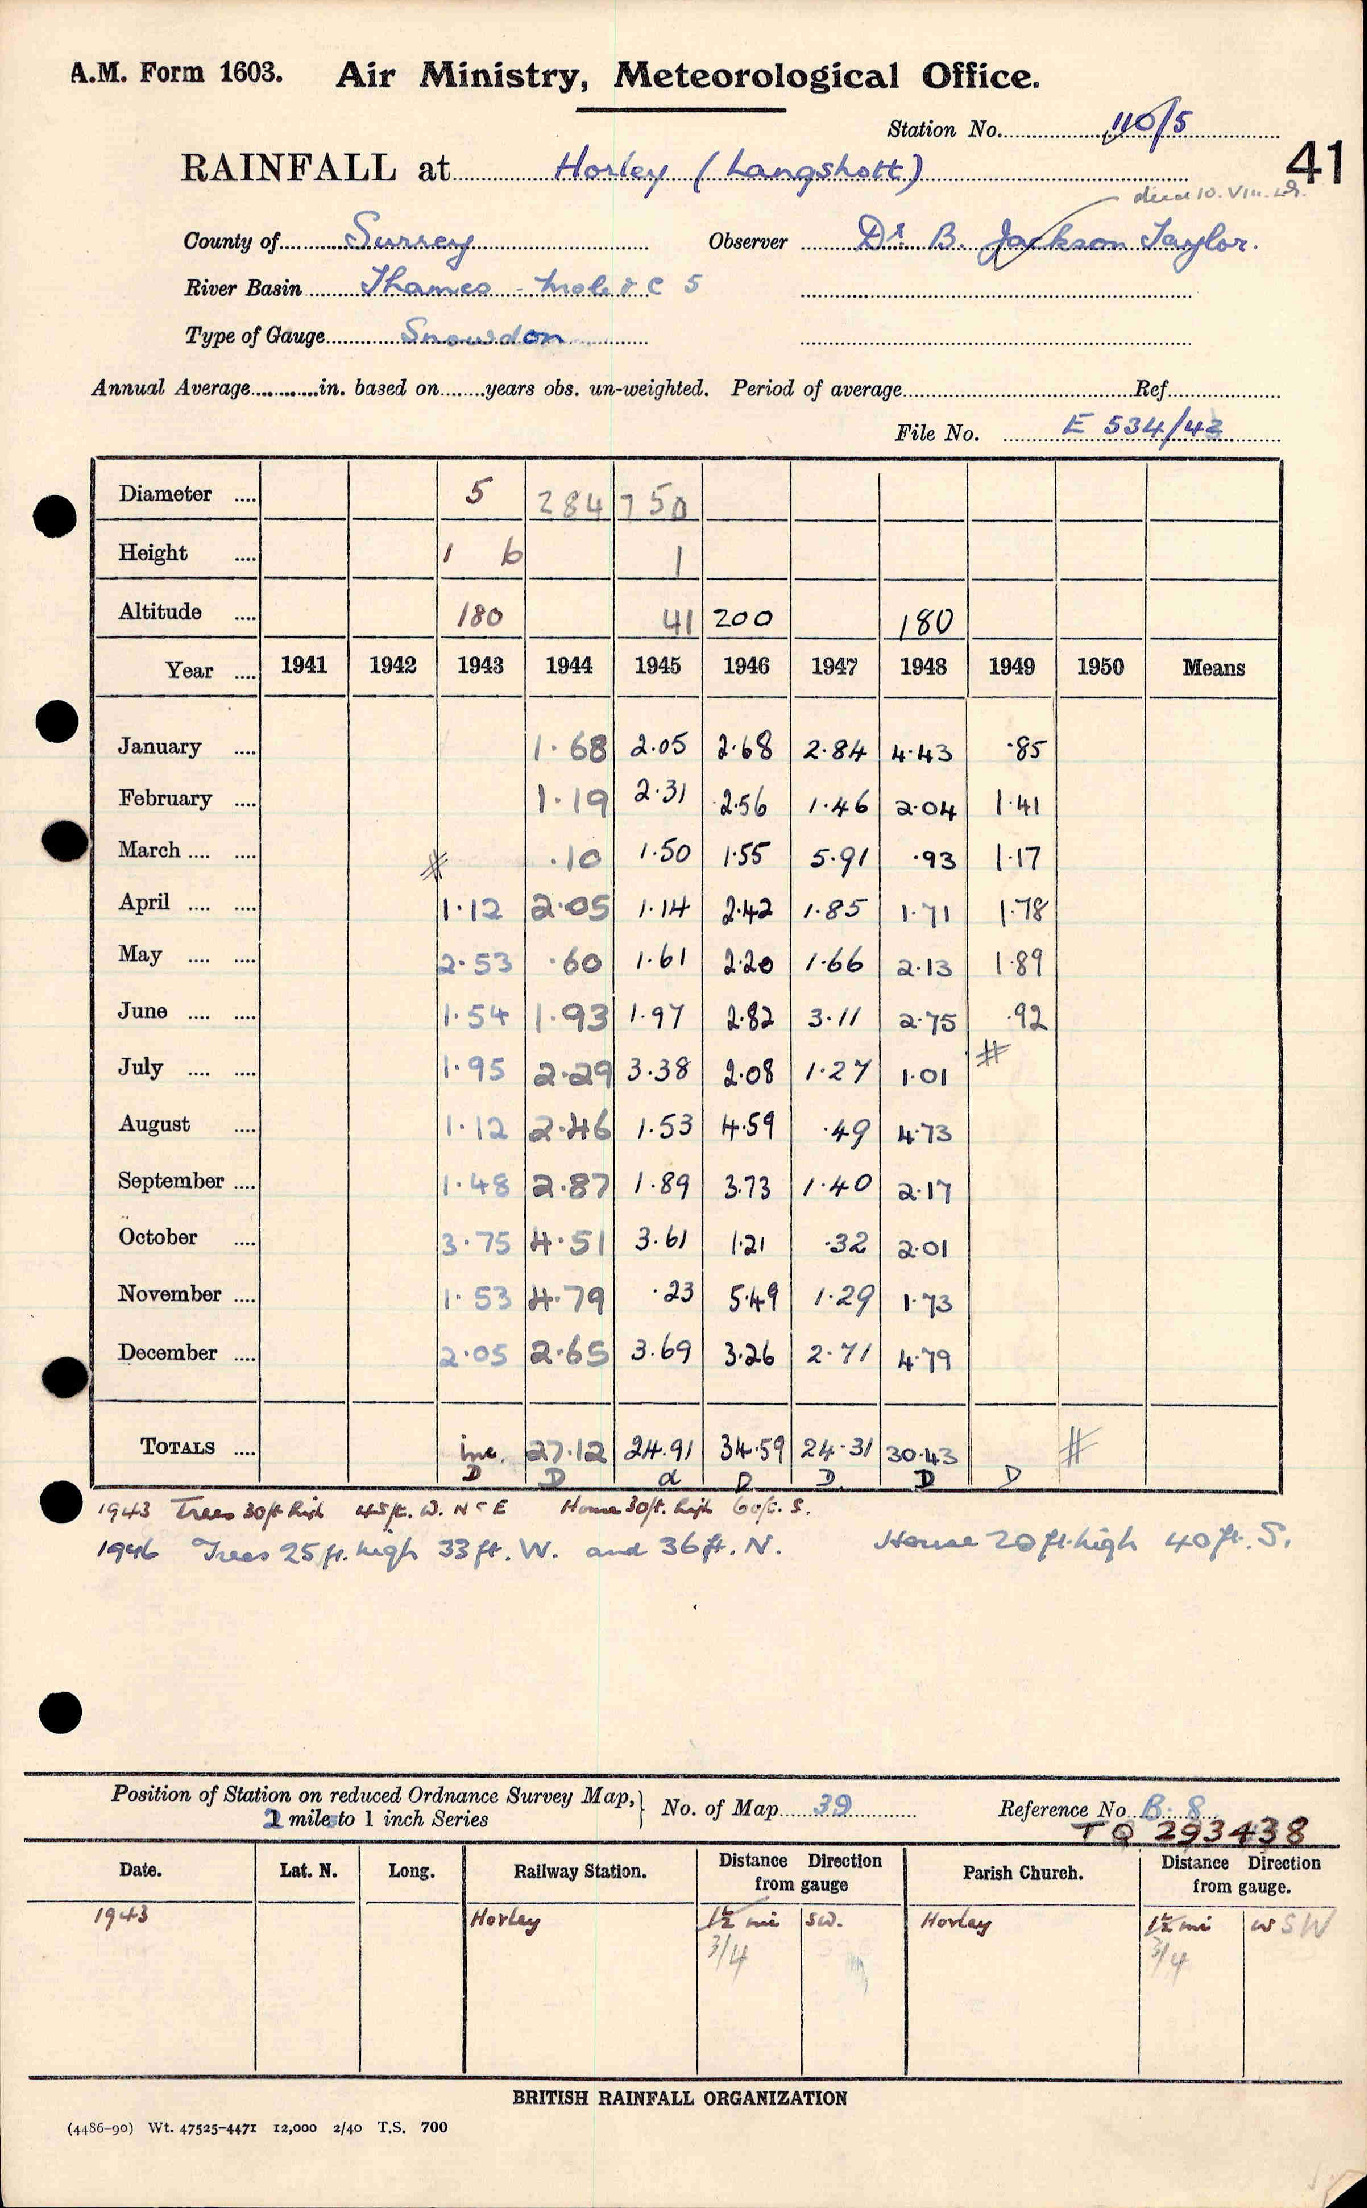 A.M. Form 1603. Air Ministry, Meteorological Office.
Station No. 110/5
RAINFALL at Horley (Langshott) 41
died 10.VIII.49.
County of Surrey Observer Dr. B. Jackson Taylor.
River Basin Thames - Mole & C 5
Type of Gauge Snowdon
Annual Average in. based on years obs. un-weighted. Period of average Ref.
File No. E 534/43
Diameter .... 5 284 750
Height .... 1 6 1
Altitude .... 180 41 200 180
Year .... 1941 1942 1943 1944 1945 1946 1947 1948 1949 1950 Means
January .... 1.68 2.05 2.68 2.84 4.43 .85
February .... 1.19 2.31 2.56 1.46 2.04 1.41
March .... .... # .10 1.50 1.55 5.91 .93 1.17
April .... .... 1.12 2.05 1.14 2.42 1.85 1.71 1.78
May .... .... 2.53 .60 1.61 2.20 1.66 2.13 1.89
June .... .... 1.54 1.93 1.97 2.82 3.11 2.75 .92
July .... .... 1.95 2.29 3.38 2.08 1.27 1.01 #
August .... 1.12 2.46 1.53 4.59 .49 4.73
September .... 1.48 2.87 1.89 3.73 1.40 2.17
October .... 3.75 4.51 3.61 1.21 .32 2.01
November .... 1.53 4.79 .23 5.49 1.29 1.73
December .... 2.05 2.65 3.69 3.26 2.71 4.79
TOTALS .... inc. 27.12 24.91 34.59 24.31 30.43 #
D D d D D D D
1943 Trees 30ft high 45ft. W. N & E House 30ft. high 60ft. S.
1946 Trees 25 ft. high 33 ft. W. and 36 ft. N. House 20 ft. high 40 ft. S.
Position of Station on reduced Ordnance Survey Map, No. of Map 39 Reference No B. 8
2 miles to 1 inch Series TQ 293438
Date. Lat. N. Long. Railway Station. Distance from gauge Direction Parish Church. Distance from gauge. Direction
1943 Horley 1½ mi SW. Horley 1½ mi W SW
3/4 3/4
BRITISH RAINFALL ORGANIZATION
(4486-90) Wt. 47525-4471 12,000 2/40 T.S. 700